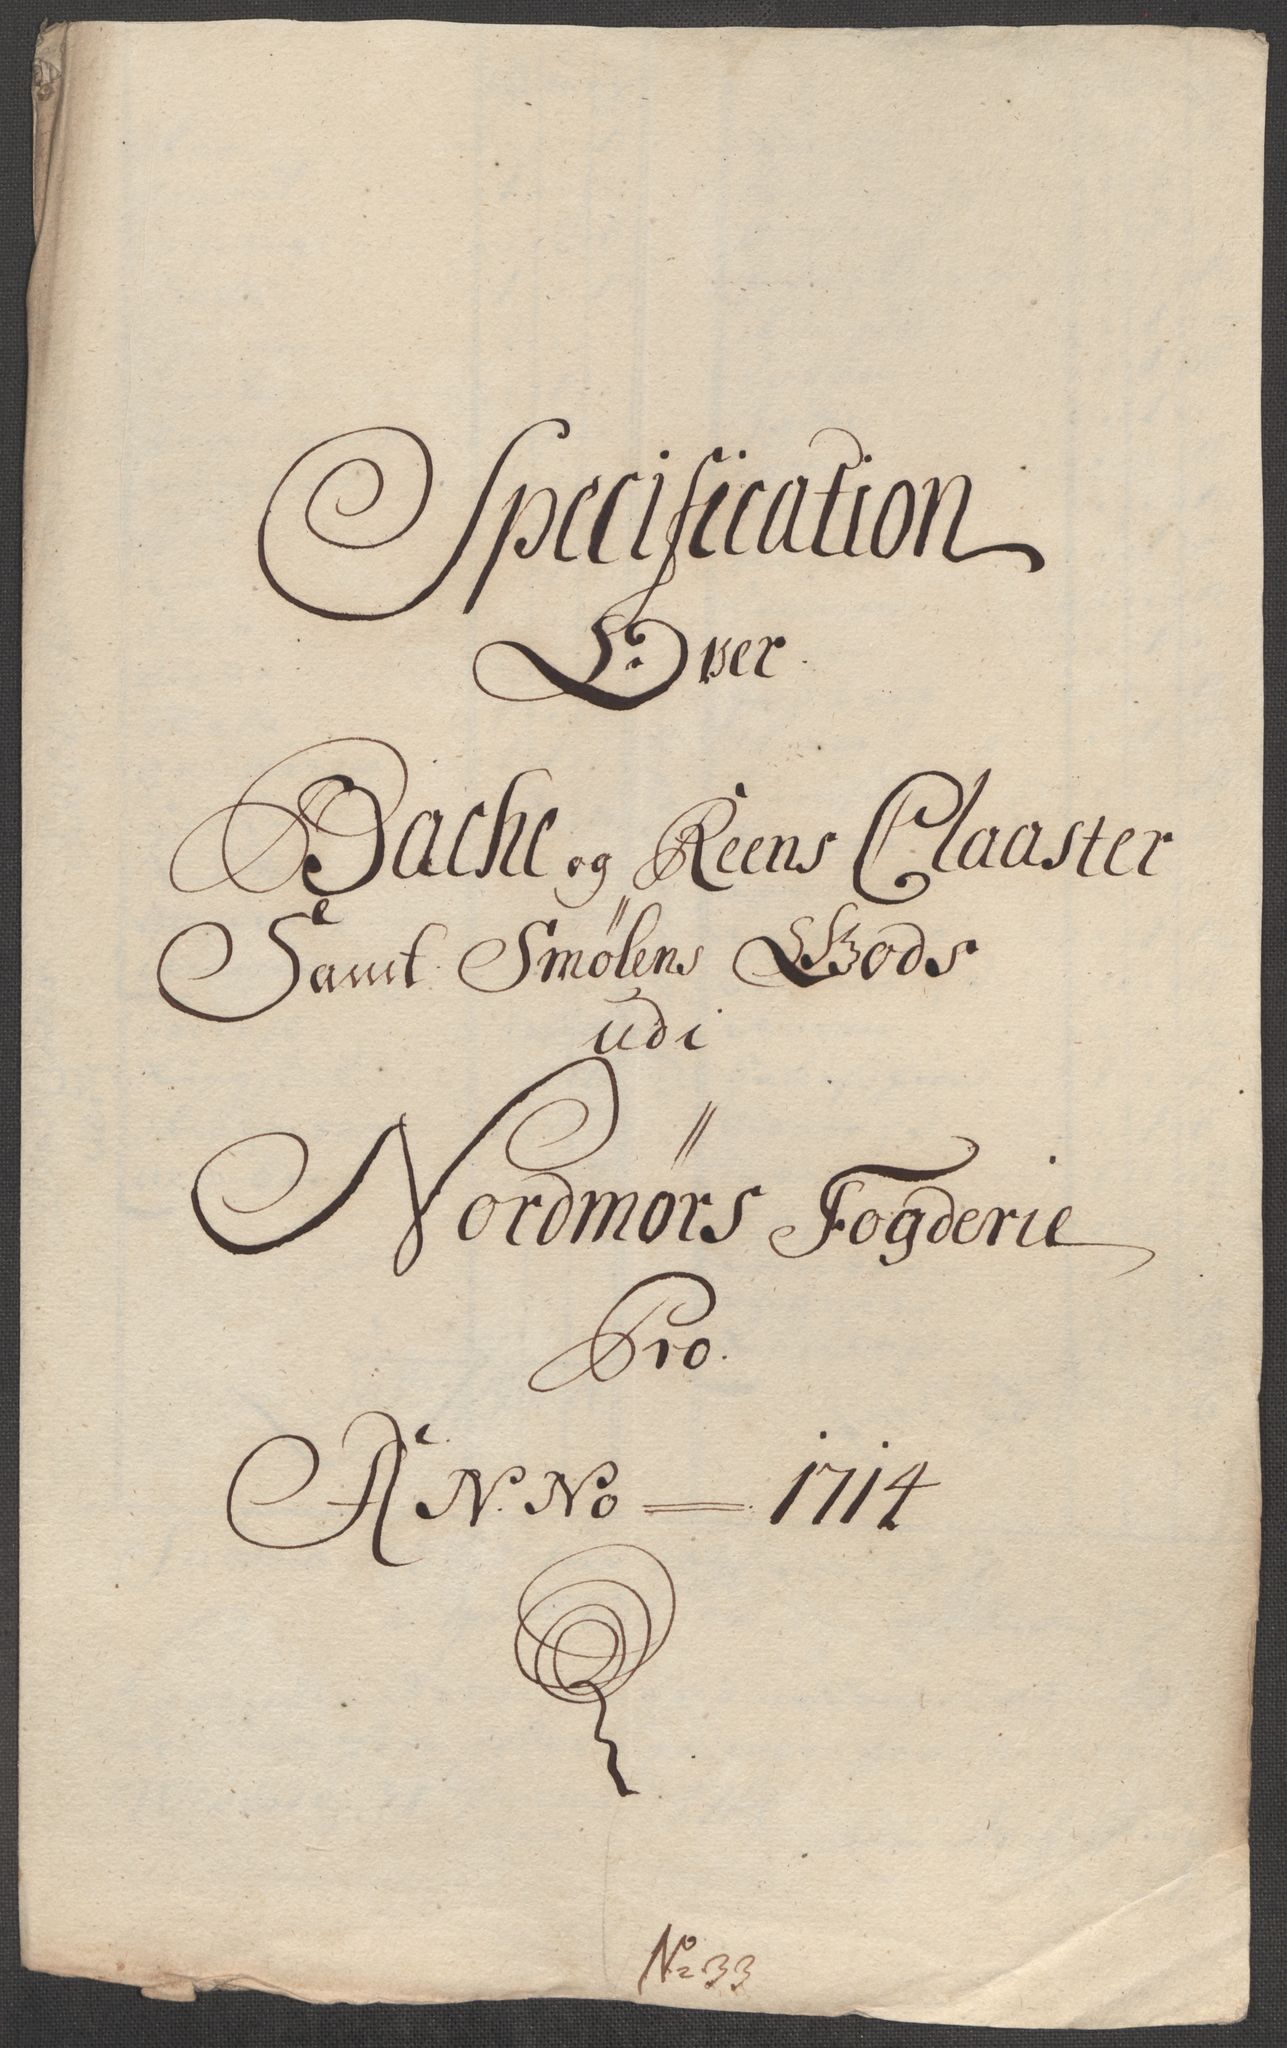 Specification
Over
Bache og Reens Claaster
Samt Smölens Gods
udi
Nordmörs Fogderie
Pro.
ANNo — 1714
No 33